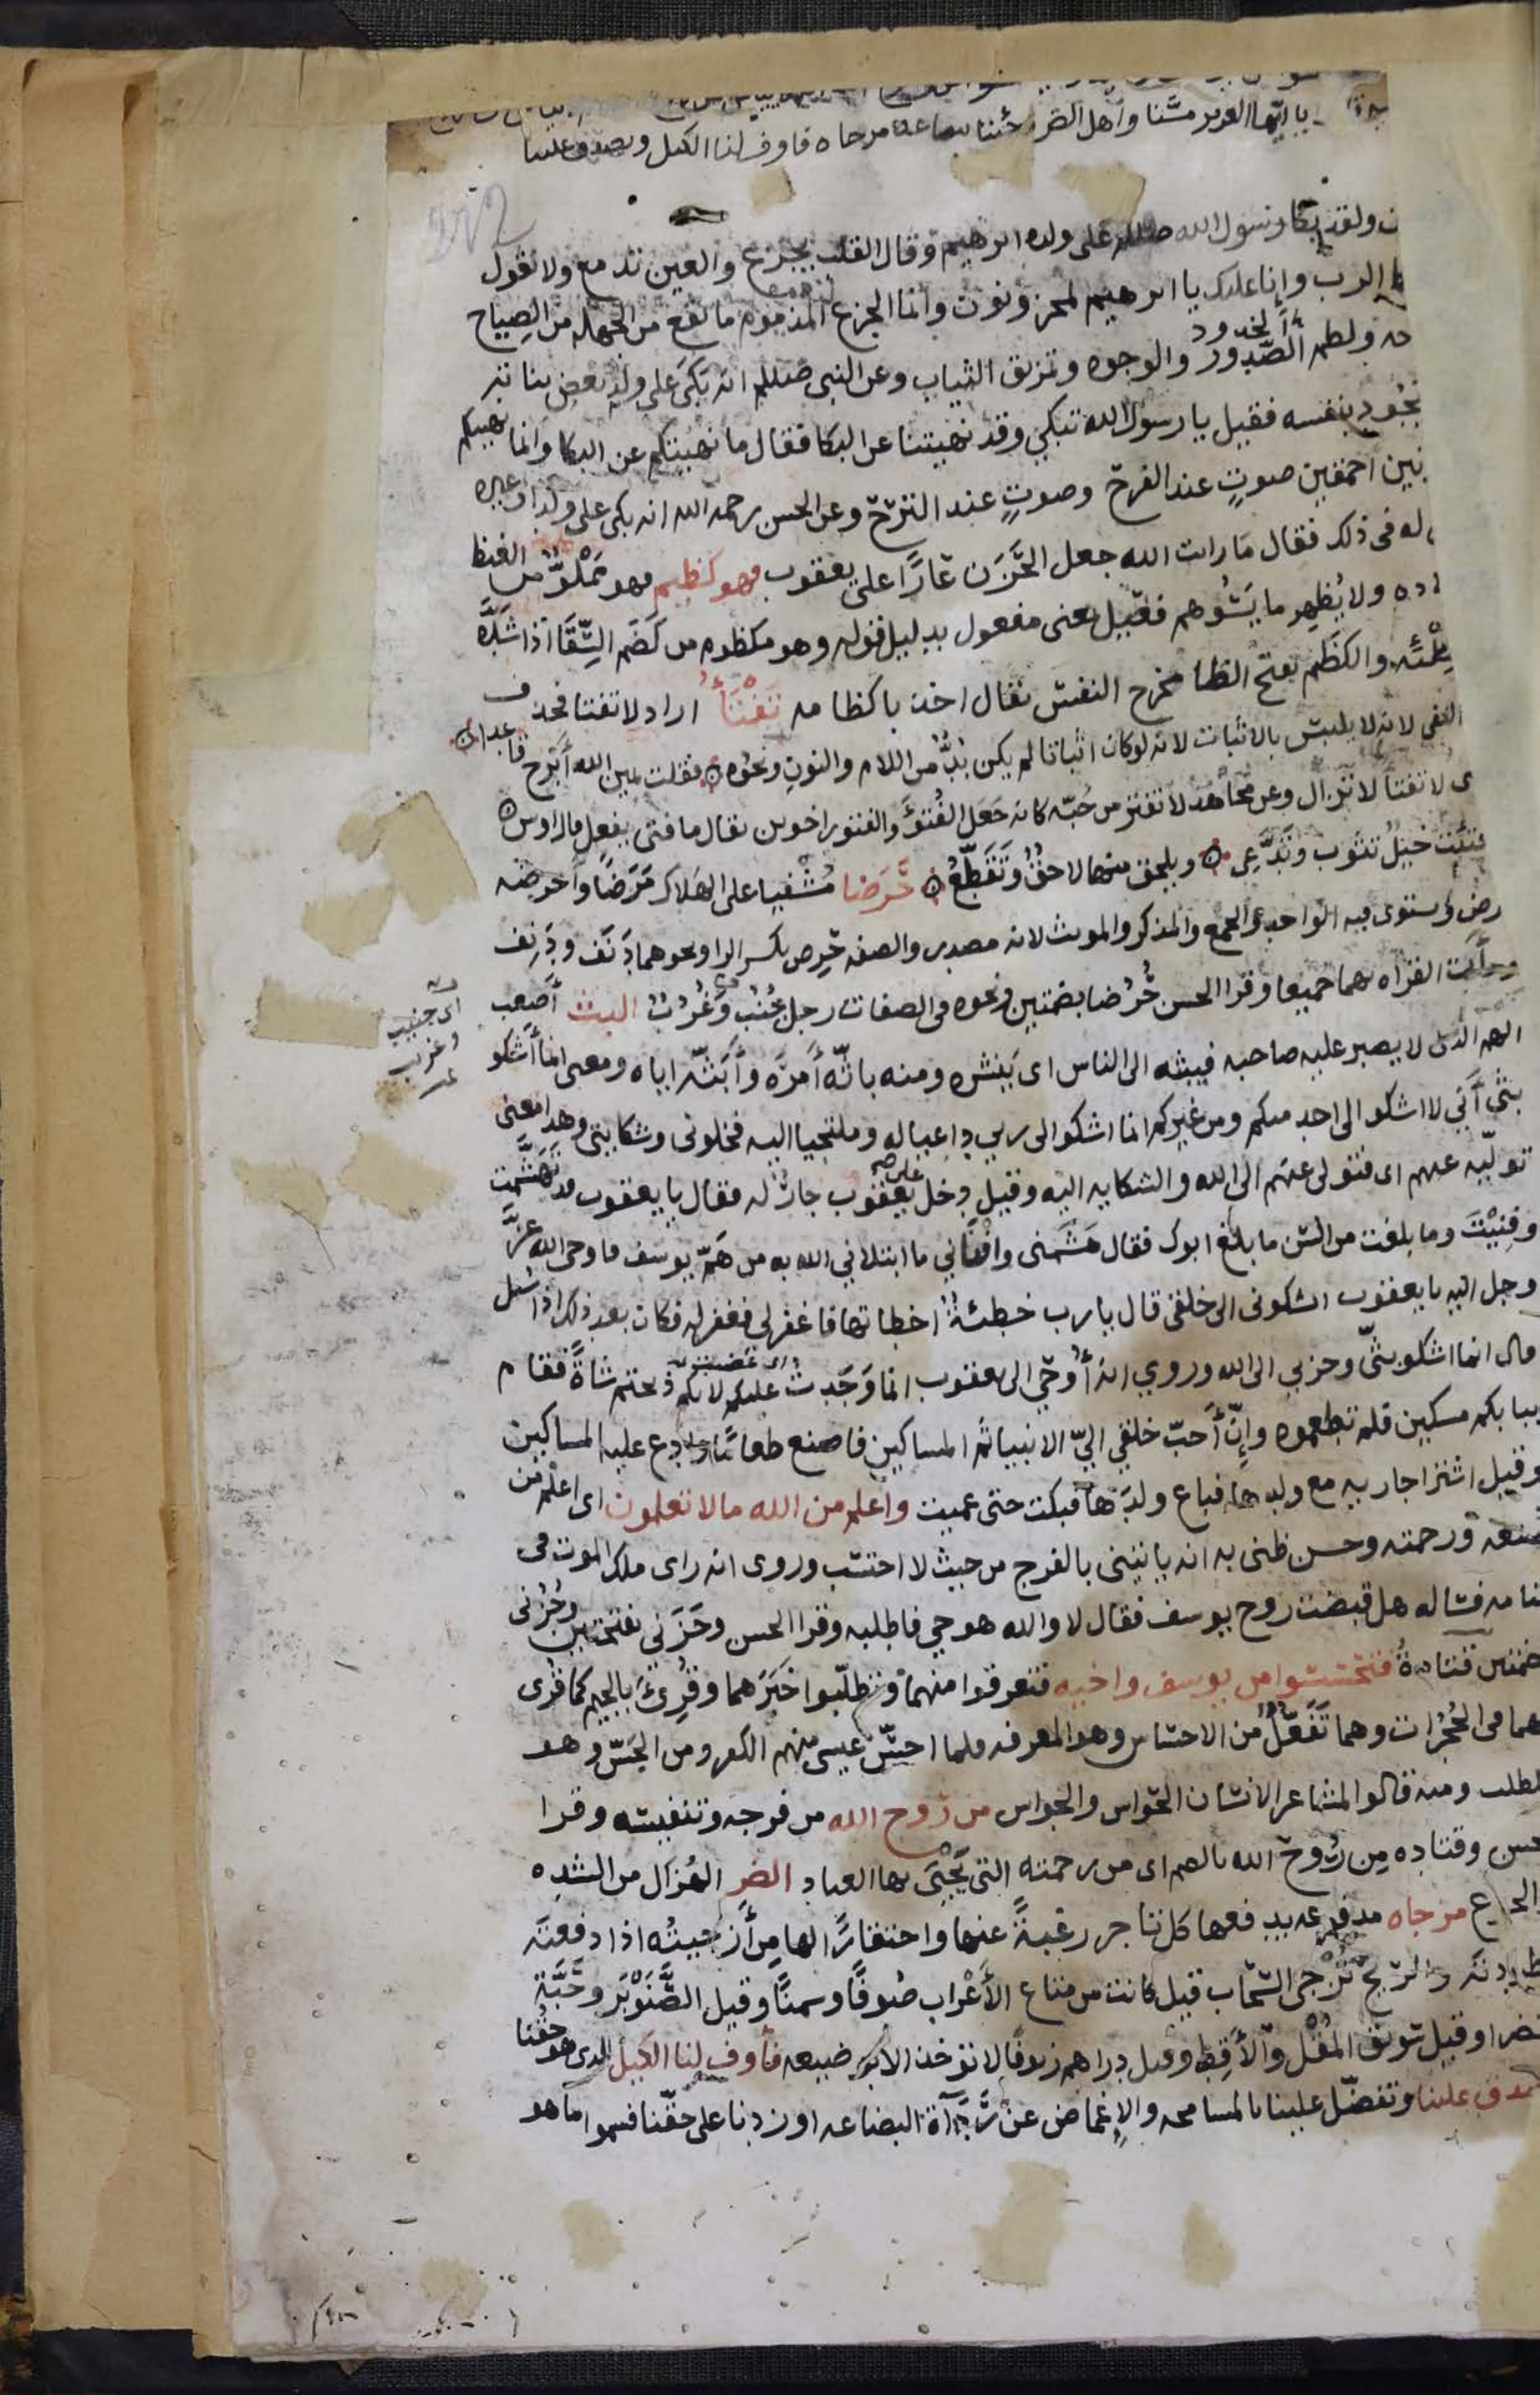 يا ايها العزيز مسّنا واهل الضر وجئنا ببضاعة مزجاه فاوف لنا الكيل وتصدق علينا
ولقد بكا رسول الله صللم على ولده ابرهيم وقال القلب يجزع والعين تدمع ولا نقول
الرب وانا عليك يا ابرهيم لمحزونون وانما الجزع المذموم ما يقع من الجهله من الصياح
حه ولطم الصّدور والوجوه وتمزيق الثياب وعن النبي صللم انه بكى على ولد بعض بناته
يجُود بنفسه فقيل يا رسول الله تبكي وقد نهيتنا عن البكا فقال ما نهيتكم عن البكا وانما نهيتكم
احمقين صوتٍ عند الفرح وصوتٍ عند الترّح وعن الحسن رحمه الله انه بكى على ولد او غيره
له في ذلك فقال ما رايت الله جعل الحَزَن عارًا على يعقوب فهو كظيم فهو مَمْلوٌّ من الغيظ
ولا يُظهر ما يَسُوهم فعيل بمعنى مفعول بدليل قوله وهو مكظوم من كَضَم السِّقَا اذا شدَّه
مِلْئه والكظَم بفتح الظا مخرج النفس يقال اخذ باكظامه تَفْتَأُ اراد لا تفتا فحذف
النفي لانه لا يلتبس بالاثبات لانه لو كان اثباتا لم يكن بُدٌّ من اللام والنون ونحوه فقلت يمين الله أبْرح قاعدا
لا تفتأ لا تزال وعن مجاهد لا تفتر من حُبّه كانه جَعَل الفُتُوَّ والفتور اخوين يقال ما فتى يفعل قال اوس
فتئت خيْلٌ تثوب وتدَّعي ويلحق منها لاحقٌ وتَقَطّعُ حَرَضا مُشْفيا على الهلاك مَرَضًا وأحرضه
ويستوى فيه الواحد والجمع والمذكر والمونث لانه مصدر والصفه حَرِض بكسر الرا ونحوهما دَنَف ودَنِف
وجأت القراه بهما جميعا وقرا الحسن حُرُضا بضمتين ونحوه في الصفات رجل جُنُبٌ وَغُرُبٌ البث أصعب
اى جنيب
وغريب
الهم الذى لا يصبر عليه صاحبه فيبثه الى الناس اى يَنْشره ومنه باثّه أمرَه وأبَثّه اياه ومعنى انما أشكو
بثّى أنّي لا اشكو الى احد منكم ومن غيركم انما اشكوا الى ربي داعيا له وملتجيا اليه فخلوني وشكايتي وهذا معنى
تولّيه عنهم اى فتولى عنهم الى الله والشكايه اليه وقيل دخل على يعقوب جارٌ له فقال يا يعقوب قد تَهَشَّمتَ
وفَنِيْتَ وما بلغت من السّن ما بلغ ابوك فقال هَشَمَني وافْناني ما ابتلاني الله به من هَمّ يوسف فاوحى الله عزَّ
وجل اليه يا يعقوب اتشكوني الى خلقى قال يا رب خطيئةٌ اخطاتها فاغفر لي فغفر له فكان بعد ذلك اذا سُئل
قال انما اشكو بثّى وحزني الى الله وروي انه أُوحِيَ الى يعقوب انما وَجَدتُ عليكم لانكم ذبحتم شاةً فقام
ببابكم مسكين فلم تطعموه وانّ أحبّ خلقي اليّ الانبيا ثم المساكين فاصنع طعامًا وادع عليه المساكين
وقيل اشترا جاريه مع ولدها فباع ولدَها فبكت حتى عميت واعلم من الله مالا تعلمون اى اعلم من
صنعه ورحمته وحسن ظني به انه ياتيني بالفرج من حيث لا احتسب وروى انه راى ملك الموت في
منامه فساله هل قبضت روح يوسف فقال لا والله هو حي فاطلبه وقرا الحسن وحَزَني بفتحتين وحُزُني
بضمتين قتادةُ فتحسسوا من يوسف واخيه فتعرفوا منهما وتطلّبوا خَبَرَهما وقُرِئ بالجيم كما قُرى
بهما في الحُجُرات وهما تَفَعُّلٌ من الاحساس وهو المعرفه فلما احسّ عيسى منهم الكفر ومن الجسّ وهو
الطلب ومنه قالوا لمشاعر الانسان الحواس والجواس من روح الله من فرجه وتنفيسه وقرا
الحسن وقتاده مِن رُوح الله بالضم اى من رحمته التى يَحْيَى بها العباد الضر الهُزال من الشده
والجوع مزجاه مدفوعه يدفعها كل تاجر رغبةً عنها واحتقارًا لها من أزجيتُه اذا دفعتَه
وطردته والريح تُزْجى السّحاب قيل كانت من متاع الأعْراب صُوفًا وسمنًا وقيل الصَّنَوْبَر وحَبَّة
الخضرا وقيل سَويق المُقْل والأَقِط وقيل دراهم زيوفًا لا توخذ الا بوَضيعه فأوف لنا الكيل الذى هو حقُّنا
وتصدق علينا وتفضّل علينا بالمسامحه والإغماض عن رَدَآة البضاعه او زدنا على حقّنا فسموا ما هو